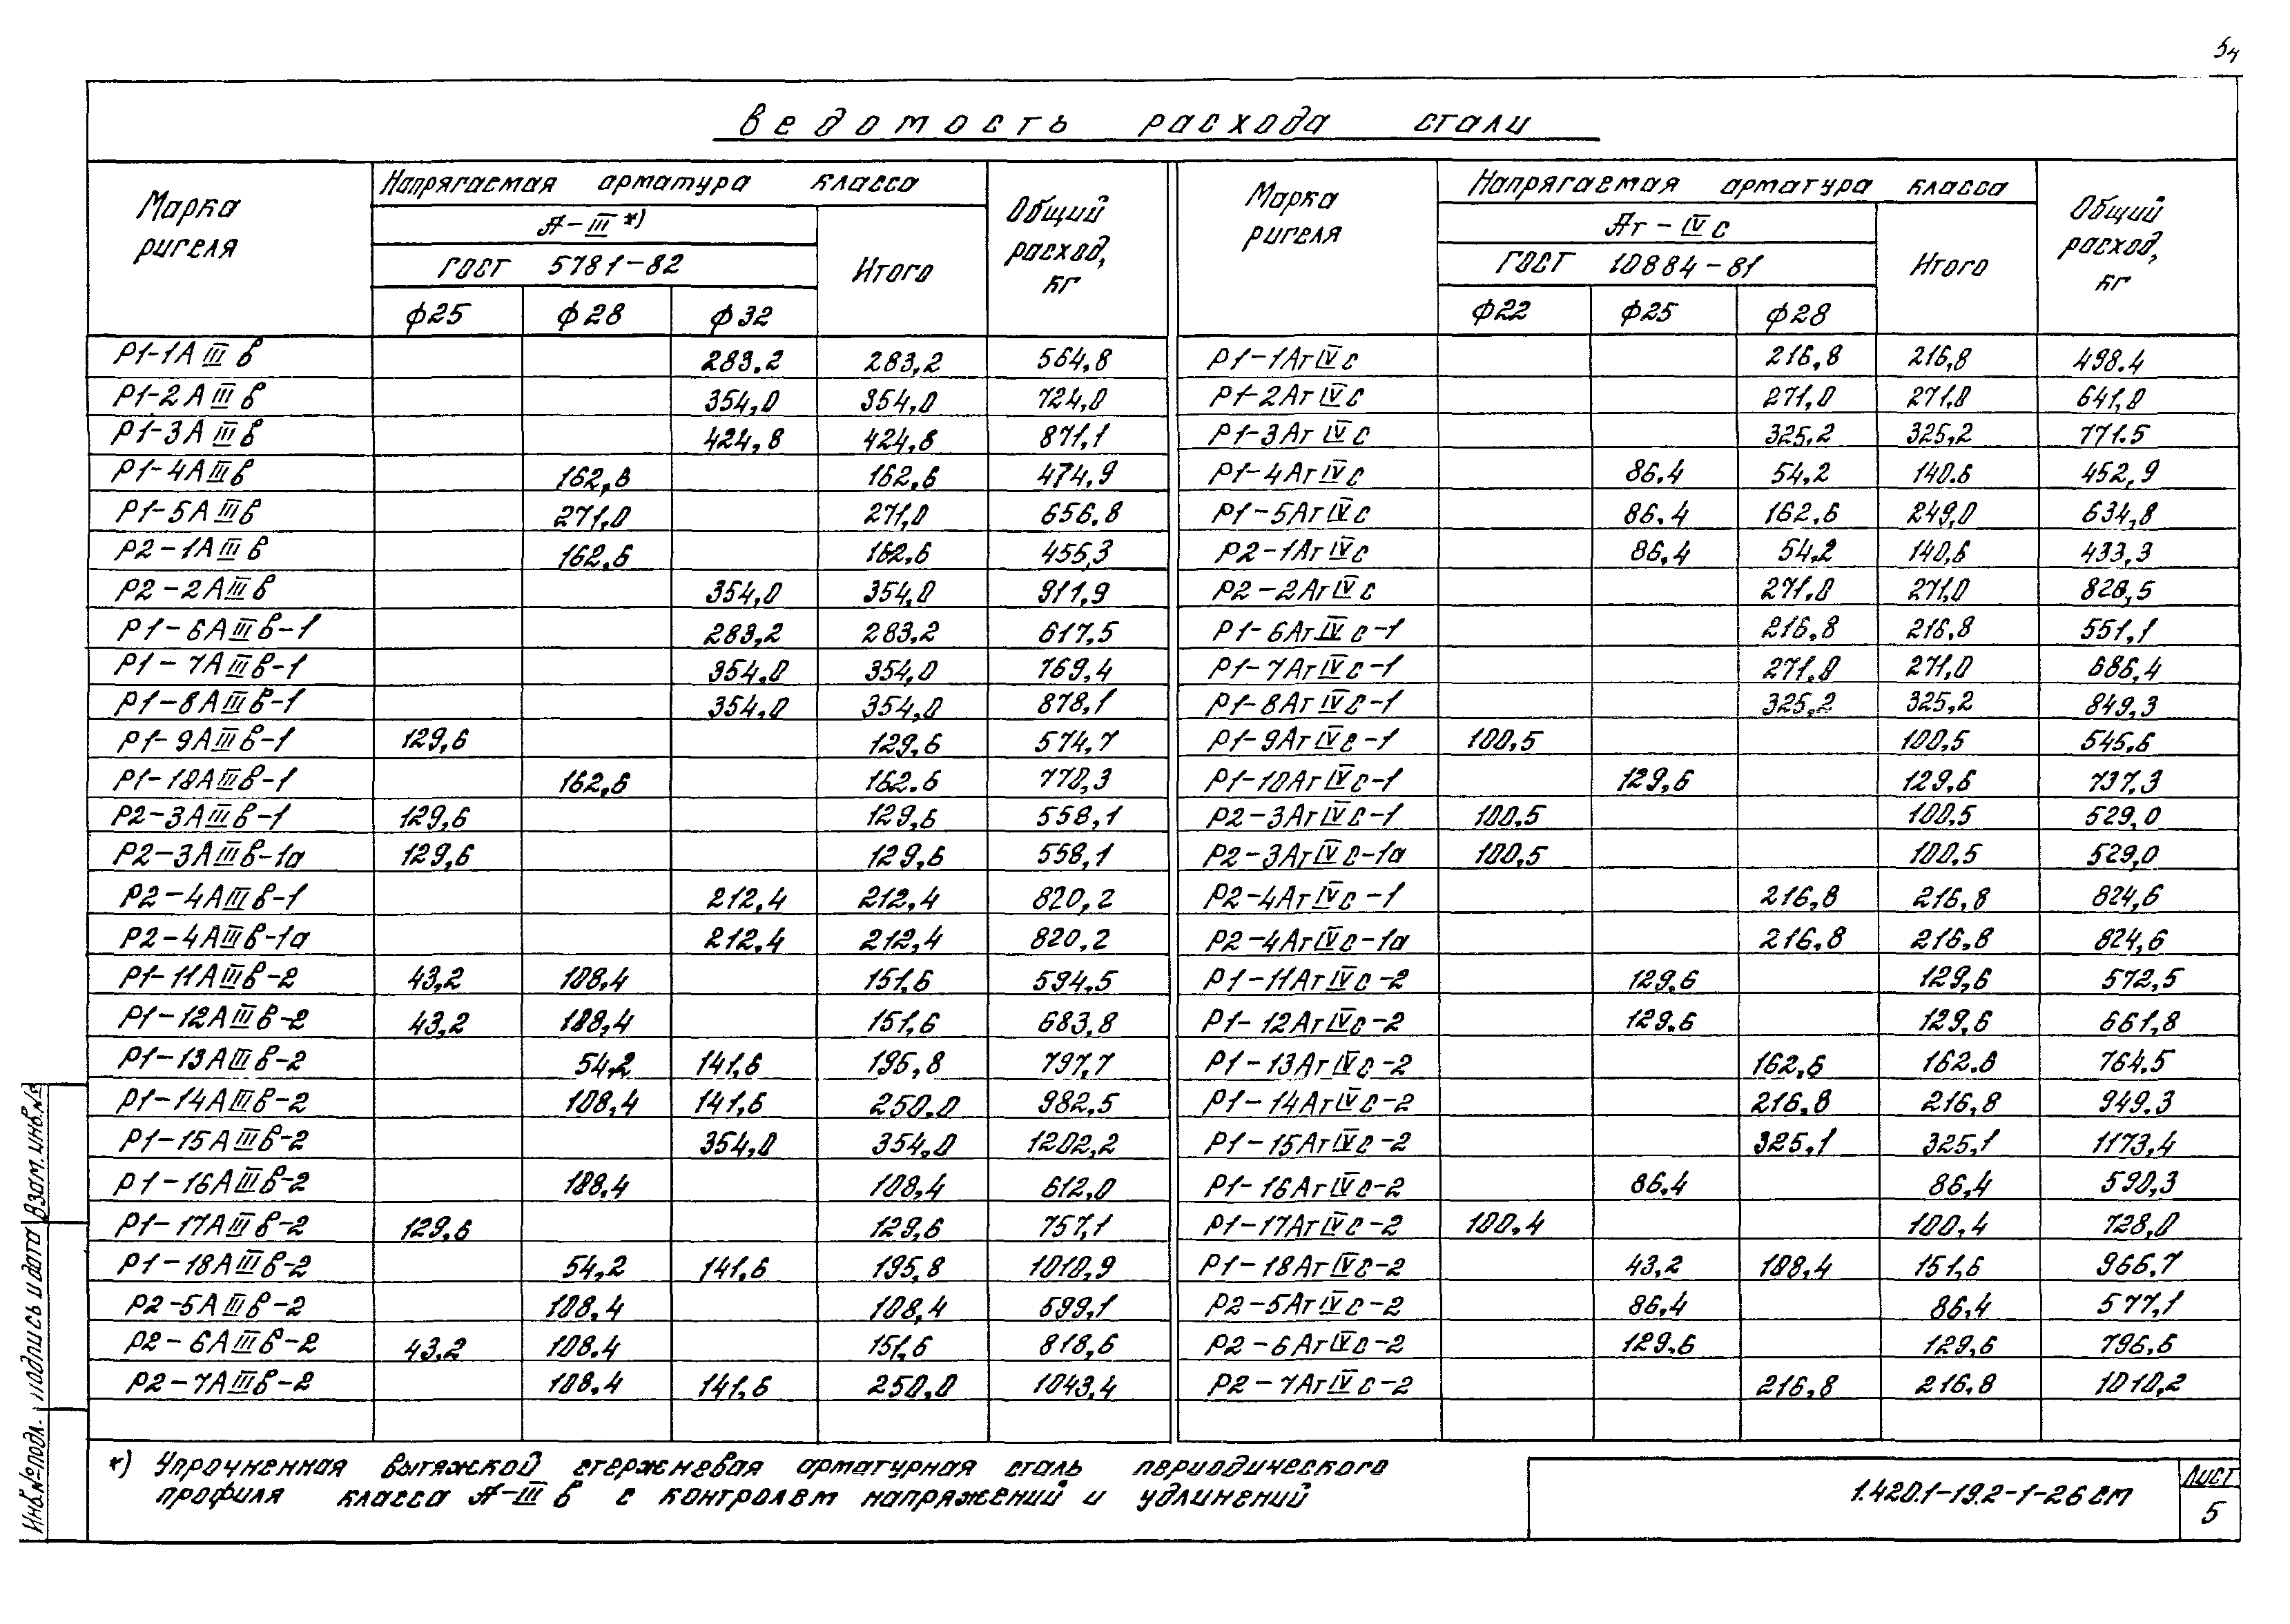 54
Ведомость расхода стали
Марка ригеля | Напрягаемая арматура класса | Общий расход, кг | Марка ригеля | Напрягаемая арматура класса | Общий расход, кг
А-III *) | Итого | Ат-IVС | Итого
ГОСТ 5781-82 | ГОСТ 10884-81
ф25 | ф28 | ф32 | ф22 | ф25 | ф28
Р1-1АIIIв 283,2 283,2 564,8 Р1-1АтIVС 216,8 216,8 498.4
Р1-2АIIIв 354,0 354,0 724,0 Р1-2АтIVС 271,0 271,0 641,0
Р1-3АIIIв 424,8 424,8 871,1 Р1-3АтIVС 325,2 325,2 771.5
Р1-4АIIIв 162,6 162,6 474,9 Р1-4АтIVС 86.4 54,2 140.6 452,9
Р1-5АIIIв 271,0 271,0 656.8 Р1-5АтIVС 86.4 162,6 249,0 634,8
Р2-1АIIIв 162,6 162,6 455,3 Р2-1АтIVС 86,4 54,2 140,6 433,3
Р2-2АIIIв 354,0 354,0 911,9 Р2-2АтIVС 271.0 271,0 828,5
Р1-6АIIIв-1 283,2 283,2 617,5 Р1-6АтIVС-1 216,8 216,8 551,1
Р1-7АIIIв-1 354.0 354,0 769,4 Р1-7АтIVС-1 271.0 271,0 686,4
Р1-8АIIIв-1 354,0 354,0 878,1 Р1-8АтIVС-1 325,2 325,2 849,3
Р1-9АIIIв-1 129,6 129,6 574,7 Р1-9АтIVС-1 100,5 100.5 545.6
Р1-10АIIIв-1 162,6 162.6 770,3 Р1-10АтIVС-1 129,6 129,6 737,3
Р2-3АIIIв-1 129,6 129,6 558,1 Р2-3АтIVС-1 100.5 100.5 529,0
Р2-3АIIIв-1а 129,6 129,6 558,1 Р2-3АтIVС-1а 100,5 100,5 529,0
Р2-4АIIIв-1 212,4 212,4 820,2 Р2-4АтIVС-1 216,8 216,8 824,6
Р2-4АIIIв-1а 212,4 212,4 820,2 Р2-4АтIVС-1а 216,8 216,8 824,6
Р1-11АIIIв-2 43,2 108,4 151,6 594,5 Р1-11АтIVС-2 129,6 129,6 572,5
Р1-12АIIIв-2 43,2 108,4 151,6 683,8 Р1-12АтIVС-2 129.6 129,6 661,8
Р1-13АIIIв-2 54,2 141,6 195,8 797,7 Р1-13АтIVС-2 162,6 162.6 764.5
Р1-14АIIIв-2 108,4 141,6 250.0 982,5 Р1-14АтIVС-2 216,8 216,8 949.3
Р1-15АIIIв-2 354,0 354,0 1202,2 Р1-15АтIVС-2 325,1 325,1 1173,4
Р1-16АIIIв-2 108,4 108,4 612,0 Р1-16АтIVС-2 86,4 86,4 590,3
Р1-17АIIIв-2 129,6 129,6 757,1 Р1-17АтIVС-2 100.4 100,4 728,0
Р1-18АIIIв-2 54,2 141,6 195,8 1010,9 Р1-18АтIVС-2 43,2 108,4 151,6 966,7
Р2-5АIIIв-2 108,4 108,4 599,1 Р2-5АтIVС-2 86,4 86,4 577,1
Р2-6АIIIв-2 43,2 108.4 151,6 818,6 Р2-6АтIVС-2 129.6 129,6 796,6
Р2-7АIIIв-2 108.4 141,6 250,0 1043,4 Р2-7АтIVС-2 216,8 216,8 1010,2
*) Упрочненная вытяжкой стержневая арматурная сталь периодического
профиля класса А-IIIв с контролем напряжений и удлинений
1.420.1-19.2-1-26СМ
Лист
5
Инв.№подл. Подпись и дата Взам.инв.№